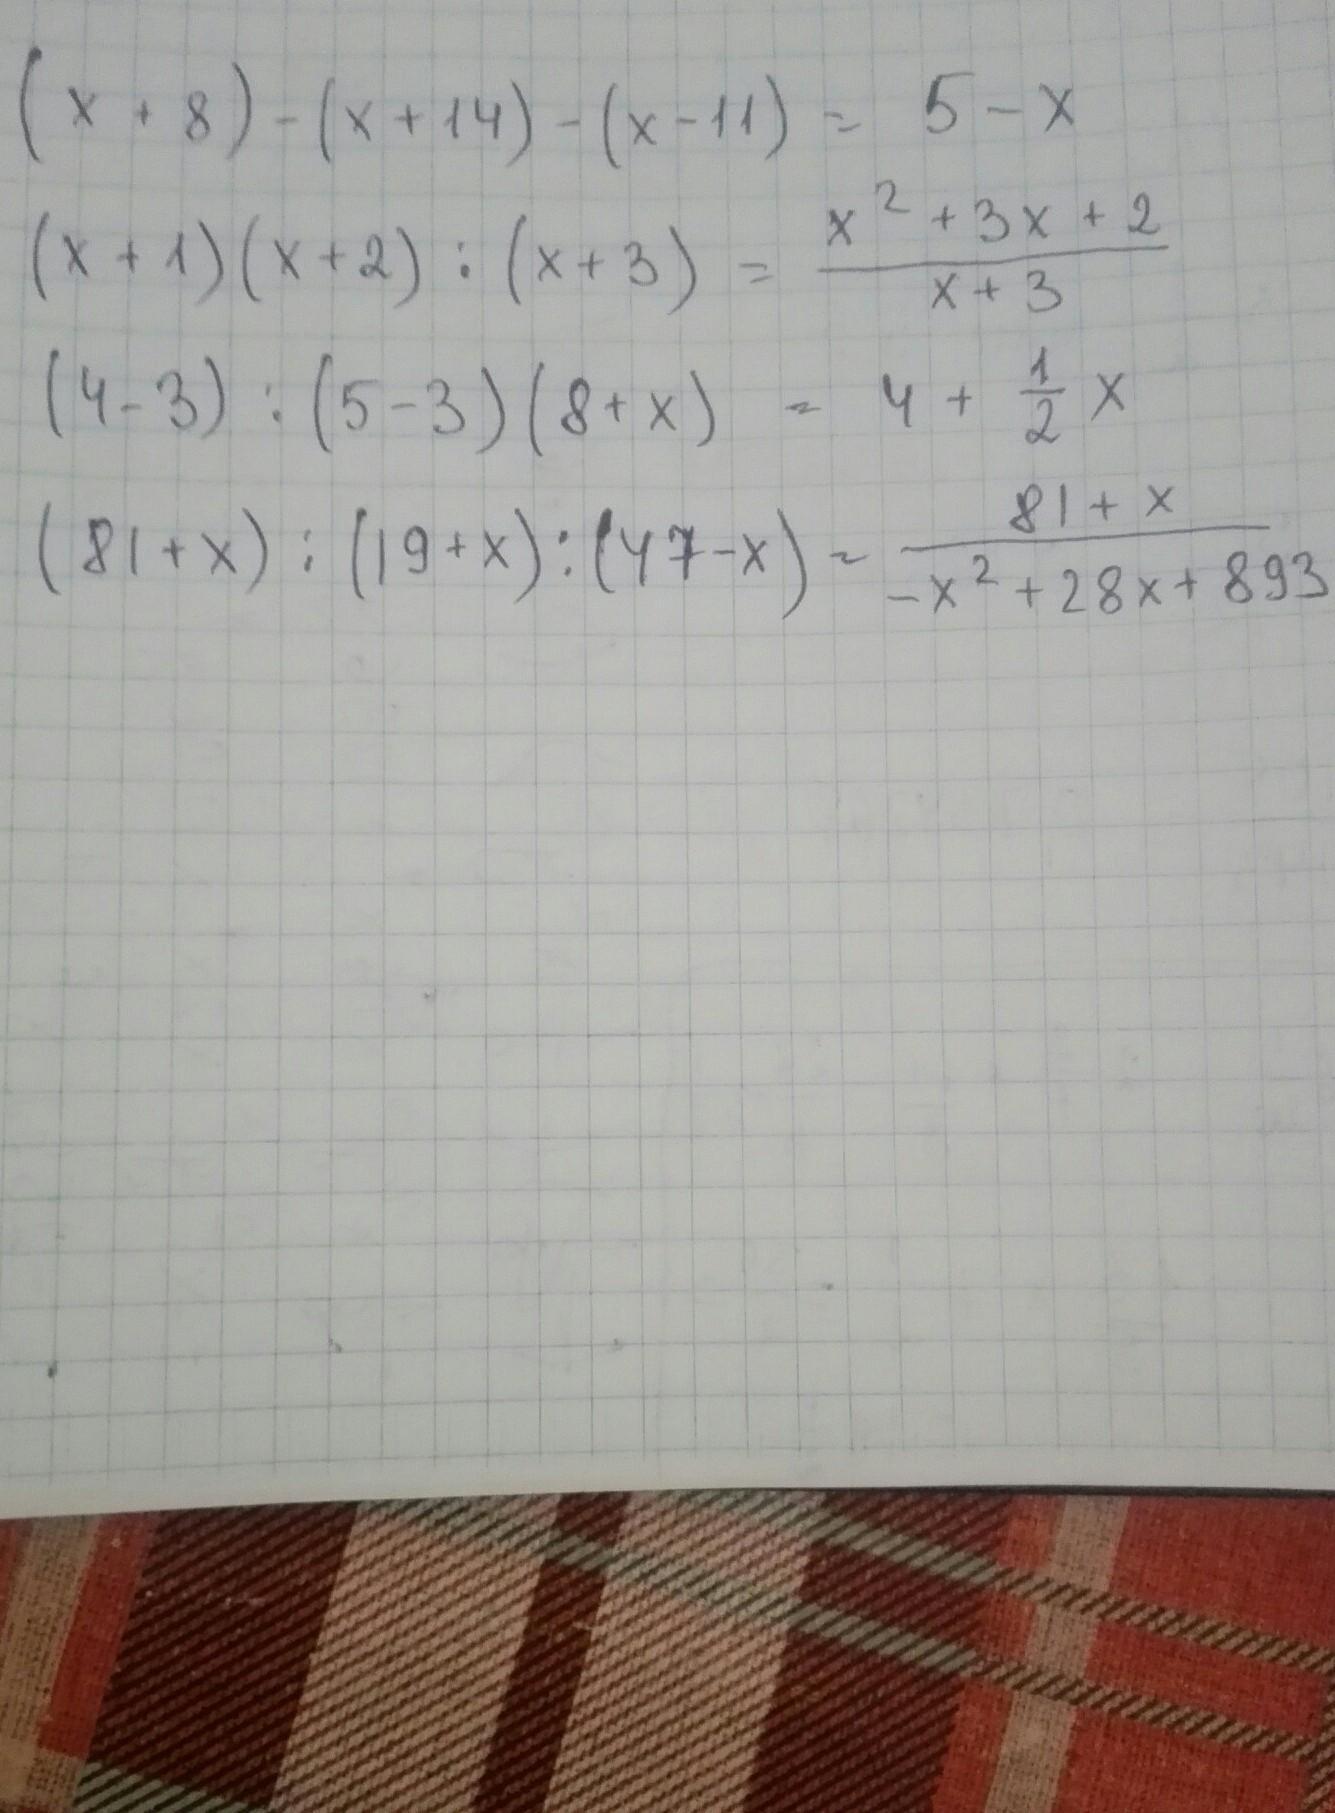 (x + 8) - (x + 14) - (x - 11) = 5 - x
(x + 1)(x + 2) : (x + 3) = \frac{x^2 + 3x + 2}{x + 3}
(4 - 3) : (5 - 3)(8 + x) = 4 + \frac{1}{2} x
(81 + x) : (19 + x) : (47 - x) = \frac{81 + x}{-x^2 + 28x + 893}